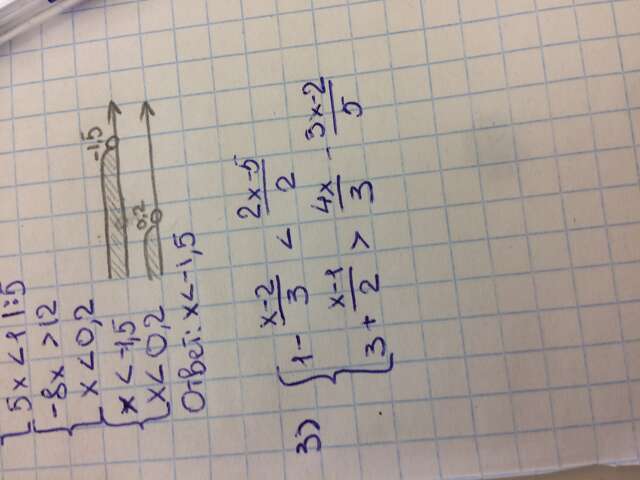 5x < 1 |:5
-8x > 12
x < 0,2
x < -1,5
-1,5
x < 0,2
0,2
Ответ: x < -1,5
3) 1 - \frac{x-2}{3} < \frac{2x-5}{2}
3 + \frac{x-1}{2} > \frac{4x}{3} - \frac{3x-2}{5}